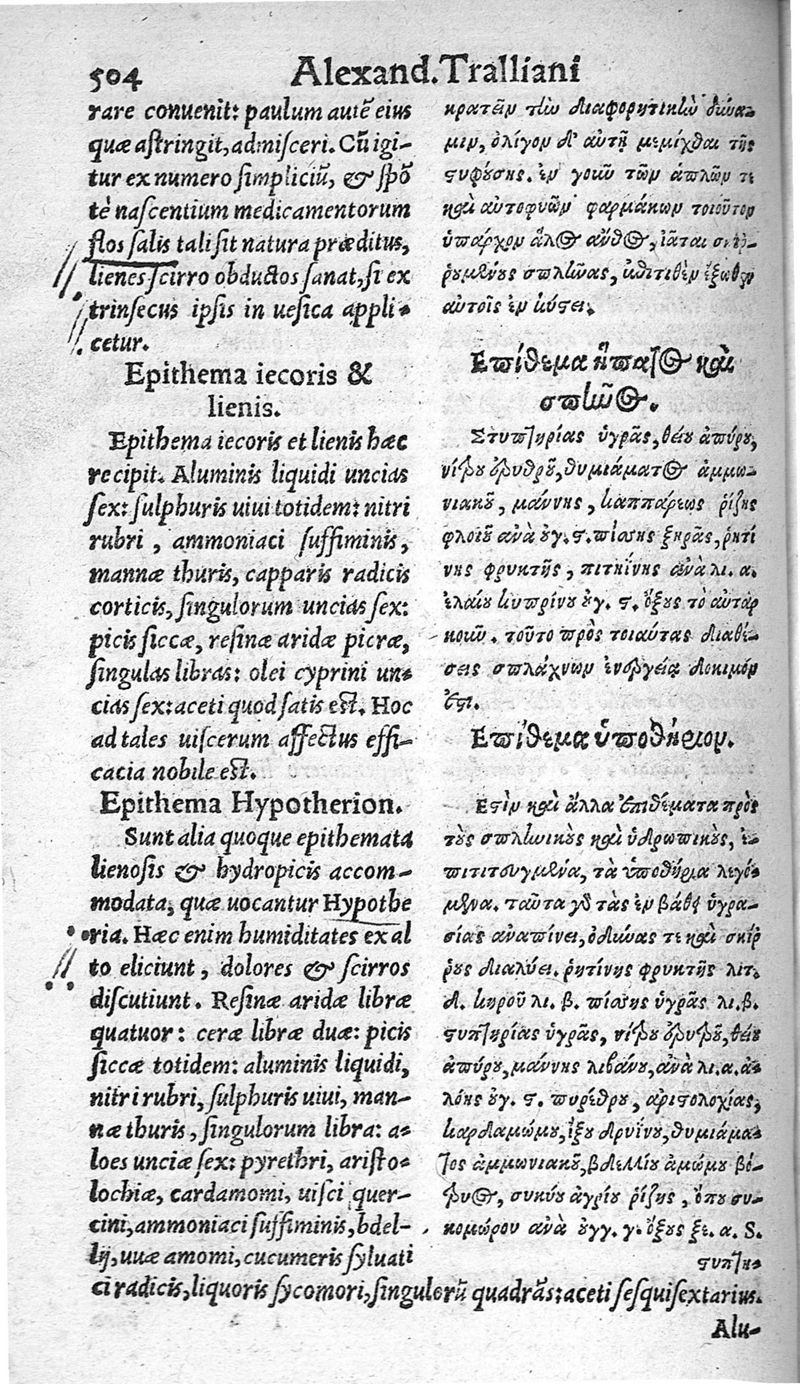 504 Alexand. Tralliani
rare conuenit: paulum autē eius
quæ astringit, admisceri. Cū igi-
tur ex numero simpliciū, & spō
tè nascentium medicamentorum
flos salis tali sit natura præditus,
lienes scirro obductos sanat, si ex
trinsecus ipsis in uesica appli-
cetur.
Epithema iecoris &
lienis.
Epithema iecoris et lienis hæc
recipit. Aluminis liquidi uncias
sex: sulphuris uiui totidem: nitri
rubri, ammoniaci suffiminis,
mannæ thuris, capparis radicis
corticis, singulorum uncias sex:
picis siccæ, resinæ aridæ picræ,
singulas libras: olei cyprini un-
cias sex: aceti quod satis est. Hoc
ad tales uiscerum affectus effi-
cacia nobile est.
Epithema Hypotherion.
Sunt alia quoque epithemata
lienosis & hydropicis accom-
modata, quæ uocantur Hypothe
ria. Hæc enim humiditates ex al
to eliciunt, dolores & scirros
discutiunt. Resinæ aridæ libræ
quatuor: ceræ libræ duæ: picis
siccæ totidem: aluminis liquidi,
nitri rubri, sulphuris uiui, man-
næ thuris, singulorum libra: a-
loes unciæ sex: pyrethri, aristo-
lochiæ, cardamomi, uisci quer-
cini, ammoniaci suffiminis, bdel-
lij, uuæ amomi, cucumeris syluati
ci radicis, liquoris sycomori, singulorū quadrās: aceti sesquisextarius.
κρατεῖν τὴν διαφορητικὴν δύνα-
μιν, ὀλίγον δ' αὐτῇ μεμίχθαι τῆς
στυφούσης. ἐν γοῦν τῶν ἁπλῶν τε
καὶ αὐτοφυῶν φαρμάκων τοιοῦτον
ὑπάρχον ἁλὸς ἄνθος, ἰᾶται σκιῤ-
ρουμένους σπλῆνας, ἐπιτιθὲν ἔξωθεν
αὐτοῖς ἐν κύστει.
Επίθεμα ἥπατος καὶ
σπληνός.
Στυπτηρίας ὑγρᾶς, θείου ἀπύρου,
νίτρου ἐρυθροῦ, θυμιάματος ἀμμω-
νιακοῦ, μάννης, καππάρεως ῥίζης
φλοιοῦ ἀνὰ ὀγ. ϛ. πίσσης ξηρᾶς, ῥητί
νης φρυκτῆς, πιτυΐνης ἀνὰ λι. α.
ἐλαίου κυπρίνου ὀγ. ϛ. ὄξους τὸ αὐταρ
κοῦν. τοῦτο πρὸς τοιαύτας διαθέ-
σεις σπλάχνων ἐνεργείᾳ δοκιμόν
ἐστι.
Επίθεμα ὑποθήριον.
Εστὶν καὶ ἄλλα ἐπιθέματα πρὸς
τοὺς σπληνικοὺς καὶ ὑδρωπικοὺς, ἐ-
πιτετευγμένα, τὰ ὑποθήρια λεγό-
μενα. ταῦτα γὰρ τὰς ἐν βάθει ὑγρα-
σίας ἀναπίνει, ὀδύνας τε καὶ σκίῤ
ῥους διαλύει. ῥητίνης φρυκτῆς λιτ.
δ. κηροῦ λι. β. πίσσης ὑγρᾶς λι. β.
στυπτηρίας ὑγρᾶς, νίτρου ἐρυθροῦ, θείου
ἀπύρου, μάννης λιβάνου, ἀνὰ λι. α. ἀ-
λόης ὀγ. ϛ. πυρέθρου, ἀριστολοχίας,
καρδαμώμου, ἰξοῦ δρυΐνου, θυμιάμα-
τος ἀμμωνιακοῦ, βδελλίου ἀμώμου βό-
τρυος, σικύου ἀγρίου ῥίζης, ὀποῦ συ-
κομώρου ἀνὰ ὀγγ. γ. ὄξους ξε. α. S.
στυπτη-
Alu-